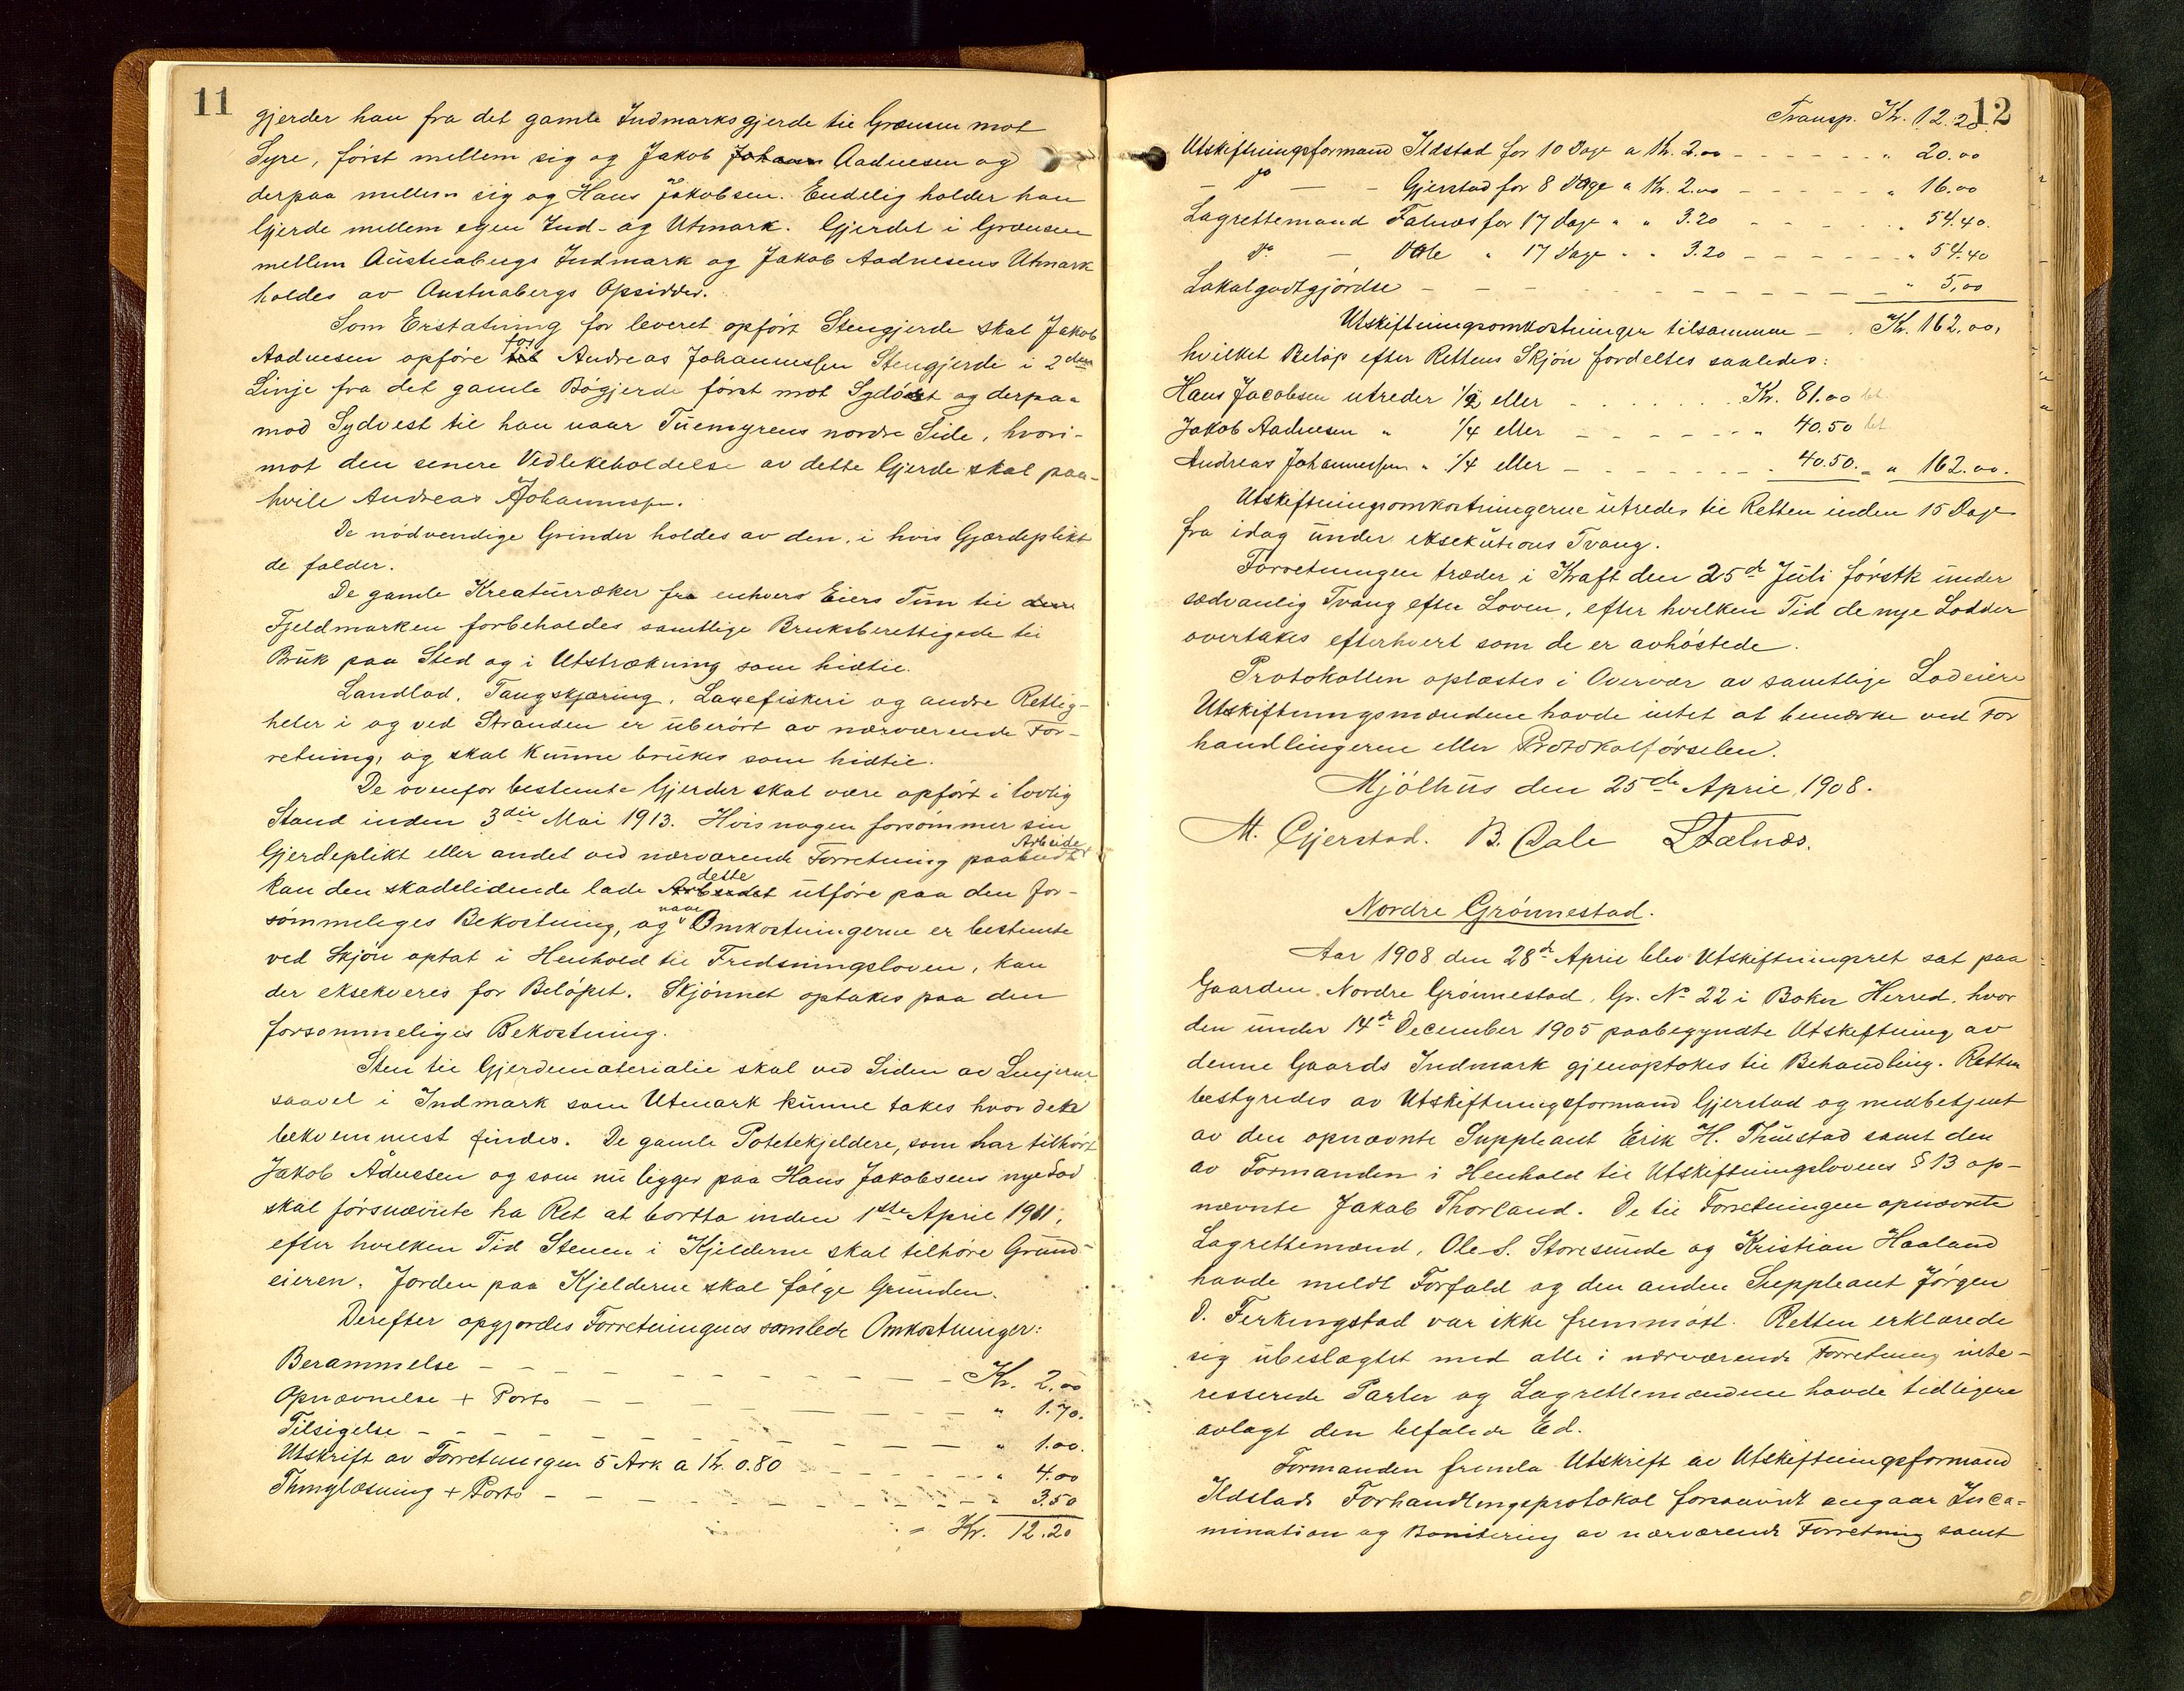 11
gjerder han fra det gamle Indmarksgjerde til Grænsen mot
Syre, først mellem sig og Jakob Johann Aadnesen og
derpaa mellem sig og Hans Jakobsen. Endelig holder han
Gjerde mellem egen Ind- og Utmark. Gjerdet i Grænsen
mellem Austnabergs Indmark og Jakob Aadnesens Utmark
holdes av Austnabergs Opsidder.
Som Erstatning for leveret opført Stengjerde skal Jakob
Aadnesen opføre til for Andreas Johannessen Stengjerde i 2den
Linje fra det gamle Bøgjerde først mot Sydøst og derpaa
mod Sydvest til han naar Tuemyrens nordre Side, hvori-
mot den senere Vedlikeholdelse av dette Gjerde skal paa-
hvile Andreas Johannessen.
De nødvendige Grinder holdes av den, i hvis Gjærdeplikt
de falder.
De gamle Kreaturræker fra enhvers Eiers Tun til
Fjeldmarken forbeholdes samtlige Bruksberettigede til
Bruk paa Sted og i Utstrækning som hidtil.
Landlod, Tangskjæring, Laxefiskeri og andre Rettig-
heter i og ved Stranden er uberørt av nærværende For-
retning, og skal kunne brukes som hidtil.
De ovenfor bestemte Gjerder skal være opført i lovlig
Stand inden 3die Mai 1913. Hvis nogen forsømmer sin
Gjerdeplikt eller andet ved nærværende Forretning paabudt Arbeide,
kan den skadelidende lade Arbeidet dette utføre paa den for-
sømmeliges Bekostning, og naar Omkostningerne er bestemte
ved Skjøn optat i Henhold til Fredningsloven, kan
der eksekveres for Beløpet. Skjønnet optakes paa den
forsømmeliges Bekostning.
Sten til Gjerdematerialie skal ved Siden av Linjerne
saavel i Indmark som Utmark kunne takes hvor dette
bekvemmest findes. De gamle Potetekjeldere, som har tilhørt
Jakob Ådnesen og som nu ligger paa Hans Jakobsens nye Lod
skal førsnævnte ha Ret at bortta inden 1ste April 1911,
efter hvilken Tid Stenen i Kjelderne skal tilhøre Grund-
eieren. Jorden paa Kjelderne skal følge Grunden.
Derefter opgjordes Forretningens samlede Omkostninger:
Berammelse - - - Kr. 2.00
Opnævnelse + Porto - - - " 1.70.
Tilsigelse - - - " 1.00.
Utskrift av Forretningen 5 Ark a Kr. 0.80 - - - " 4.00
Thinglæsning + Porto - - - " 3.50
= Kr. 12.20
12
Transp. Kr. 12.20
Utskiftningsformand Ildstad for 10 Dage a Kr. 2.00 - - - " 20.00
- do - - Gjerstad for 8 Dage a Kr. 2.00 - - - " 16.00
Lagrettemand Falnæs for 17 Dage " " 3.20 - - - " 54.40.
do - Dale " 17 Dage " " 3.20 - - - " 54.40
Lokalgodtgjørdse - - - " 5,00
Utskiftningsomkostninger tilsammen - . Kr. 162.00,
hvilket Beløp efter Rettens Skjøn fordeltes saaledes:
Hans Jacobsen utreder 1/2 eller - - - Kr. 81.00 bet
Jakob Aadnesen " 1/4 eller - - - " 40.50 bet
Andreas Johannessen " 1/4 eller - - - " 40.50. = " 162.00.
Utskiftningsomkostningerne utredes til Retten inden 15 Dage
fra idag under eksekutions Tvang.
Forretningen træder i Kraft den 25de Juli førstk under
sædvanlig Tvang efter Loven, efter hvilken Tid de nye Lodder
overtakes efterhvert som de er avhøstede.
Protokollen oplæstes i Overvær av samtlige Lodeiere
Utskiftningsmændene havde intet at bemærke ved For
handlingerne eller Protokolførselen.
Mjølhus den 25de April 1908.
M. Gjerstad. B. Dale L Falnæs.
Nordre Grønnestad.
Aar 1908 den 28de April blev Utskiftningsret sat paa
Gaarden Nordre Grønnestad, Gr. No 22 i Bokn Herred, hvor
den under 14de December 1905 paabegyndte Utskiftning av
denne Gaards Indmark gjenoptokes til Behandling. Retten
bestyredes av Utskiftningsformand Gjerstad og medbetjent
av den opnævnte Suppleant Erik H. Thuestad samt den
av Formanden i Henhold til Utskiftningslovens § 13 op-
nævnte Jakob Thorland. De til Forretningen opnævnte
Lagrettemænd, Ole S. Storesunde og Kristian Haaland
havde meldt Forfald og den anden Suppleant Jørgen
D. Ferkingstad var ikke fremmøtt. Retten erklærede
sig ubeslægtet med alle i nærværende Forretning inte-
resserede Parter og Lagrettemændene havde tidligere
avlagt den befalede Ed.
Formanden fremla Utskrift av Utskiftningsformand
Ildstads Forhandlingsprotokol forsaavidt angaar Inca-
mination og Bonitering av nærværende Forretning samt